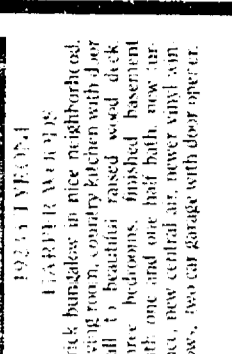 HARPER WOODS
rick bungalow in nice neighborhood.
ving room, country kitchen with door
all to beautiful raised wood deck.
ree bedrooms, finished basement
th one and one half bath, new fur-
new central air, newer vinyl win-
ows, two car garage with door opener.